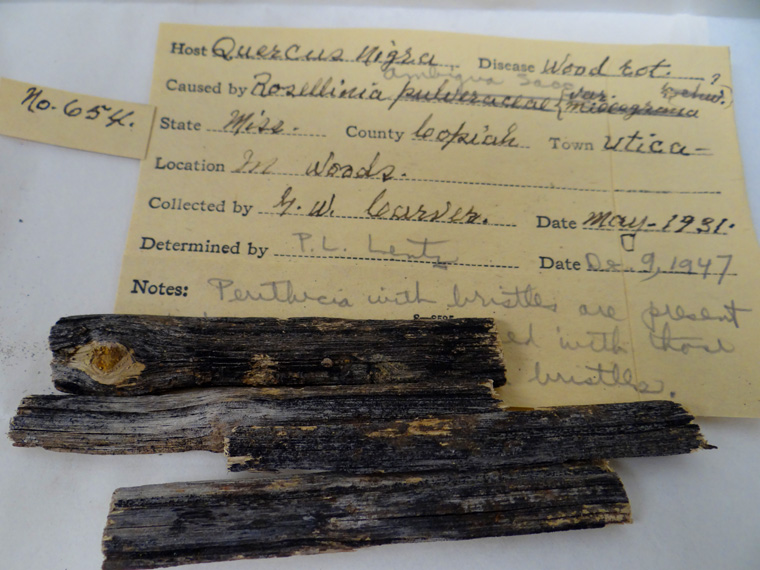 No. 654.
Host Quercus nigra Disease Wood rot. ?
ambigua Sacc.
Caused by Rosellinia pulveraceae (var. microgrania Schw.)
State Miss. County Copiah Town Utica-
Location In woods.
Collected by G. W. Carver. Date May-1931.
Determined by P. L. Lentz Date Dec. 9, 1947
Notes: Perithecia with bristles are present
ed with those
bristles.